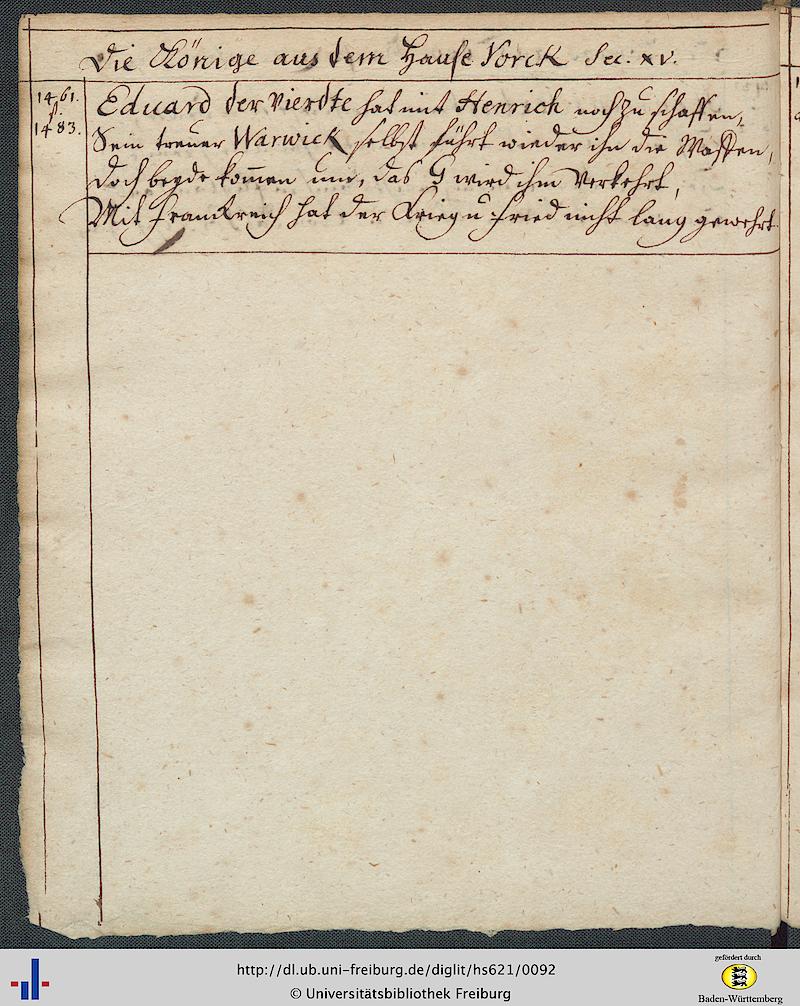 Die Könige aus dem Hause Yorck Sec: XV.
1461.
1483.
Eduard der Vierdte hat mit Henrich noch zu schaffen,
Sein treuer Warwick selbst führt wieder ihn die Waffen,
Doch beyde kom̄en um, das G wird ihm verkehrt,
Mit Franckreich hat der Krieg u Fried nicht lang gewehrt
http://dl.ub.uni-freiburg.de/diglit/hs621/0092
© Universitätsbibliothek Freiburg
gefördert durch
Baden-Württemberg